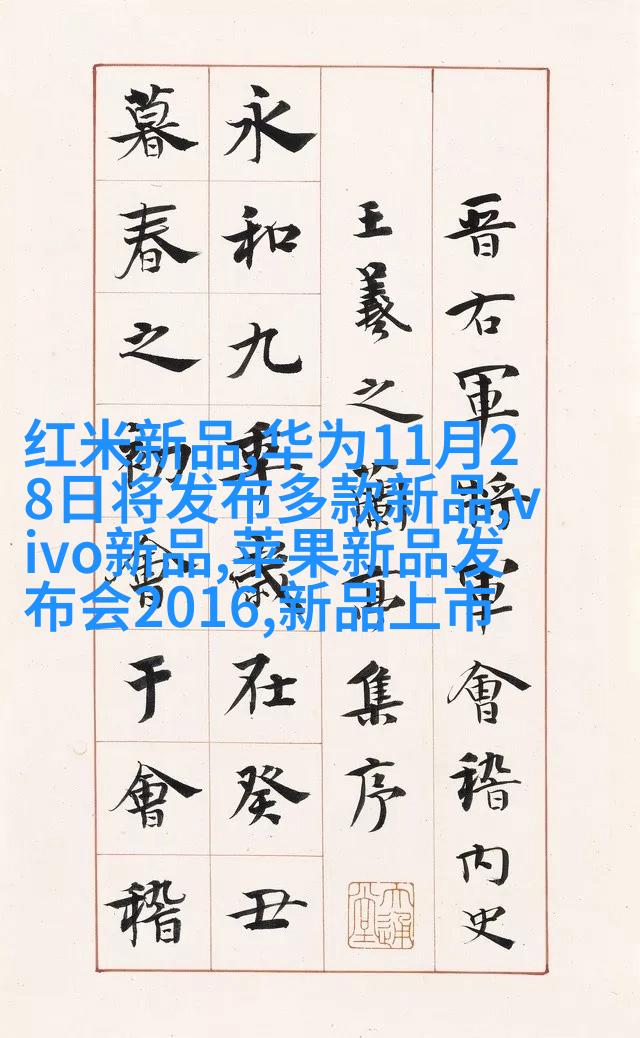 晋右軍將軍會稽内史
王羲之蘭亭集序
永和九年歲在癸丑
暮春之初會于會稽
红米新品,华为11月2
8日将发布多款新品,v
ivo新品,苹果新品发
布会2016,新品上市